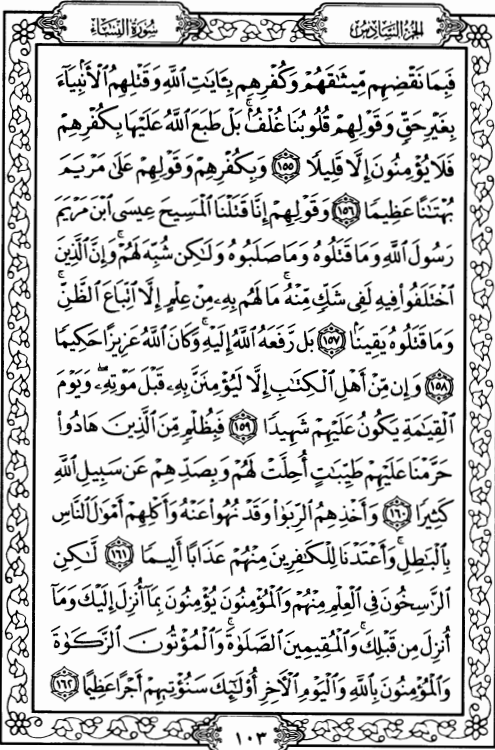 سُورَةُ النِّسَاءِ
الجُزْءُ السَّادِسُ
فَبِمَا نَقْضِهِم مِّيثَٰقَهُمْ وَكُفْرِهِم بِـَٔايَٰتِ ٱللَّهِ وَقَتْلِهِمُ ٱلْأَنۢبِيَآءَ
بِغَيْرِ حَقٍّ وَقَوْلِهِمْ قُلُوبُنَا غُلْفٌۢ ۚ بَلْ طَبَعَ ٱللَّهُ عَلَيْهَا بِكُفْرِهِمْ
فَلَا يُؤْمِنُونَ إِلَّا قَلِيلًا ١٥٥ وَبِكُفْرِهِمْ وَقَوْلِهِمْ عَلَىٰ مَرْيَمَ
بُهْتَٰنًا عَظِيمًا ١٥٦ وَقَوْلِهِمْ إِنَّا قَتَلْنَا ٱلْمَسِيحَ عِيسَى ٱبْنَ مَرْيَمَ
رَسُولَ ٱللَّهِ وَمَا قَتَلُوهُ وَمَا صَلَبُوهُ وَلَٰكِن شُبِّهَ لَهُمْ ۚ وَإِنَّ ٱلَّذِينَ
ٱخْتَلَفُوا۟ فِيهِ لَفِى شَكٍّ مِّنْهُ ۚ مَا لَهُم بِهِۦ مِنْ عِلْمٍ إِلَّا ٱتِّبَاعَ ٱلظَّنِّ ۚ
وَمَا قَتَلُوهُ يَقِينًۢا ١٥٧ بَل رَّفَعَهُ ٱللَّهُ إِلَيْهِ ۚ وَكَانَ ٱللَّهُ عَزِيزًا حَكِيمًا
١٥٨ وَإِن مِّنْ أَهْلِ ٱلْكِتَٰبِ إِلَّا لَيُؤْمِنَنَّ بِهِۦ قَبْلَ مَوْتِهِۦ ۖ وَيَوْمَ
ٱلْقِيَٰمَةِ يَكُونُ عَلَيْهِمْ شَهِيدًا ١٥٩ فَبِظُلْمٍ مِّنَ ٱلَّذِينَ هَادُوا۟
حَرَّمْنَا عَلَيْهِمْ طَيِّبَٰتٍ أُحِلَّتْ لَهُمْ وَبِصَدِّهِمْ عَن سَبِيلِ ٱللَّهِ
كَثِيرًا ١٦٠ وَأَخْذِهِمُ ٱلرِّبَوٰا۟ وَقَدْ نُهُوا۟ عَنْهُ وَأَكْلِهِمْ أَمْوَٰلَ ٱلنَّاسِ
بِٱلْبَٰطِلِ ۚ وَأَعْتَدْنَا لِلْكَٰفِرِينَ مِنْهُمْ عَذَابًا أَلِيمًا ١٦١ لَّٰكِنِ
ٱلرَّٰسِخُونَ فِى ٱلْعِلْمِ مِنْهُمْ وَٱلْمُؤْمِنُونَ يُؤْمِنُونَ بِمَآ أُنزِلَ إِلَيْكَ وَمَآ
أُنزِلَ مِن قَبْلِكَ ۚ وَٱلْمُقِيمِينَ ٱلصَّلَوٰةَ ۚ وَٱلْمُؤْتُونَ ٱلزَّكَوٰةَ
وَٱلْمُؤْمِنُونَ بِٱللَّهِ وَٱلْيَوْمِ ٱلْءَاخِرِ أُو۟لَٰٓئِكَ سَنُؤْتِيهِمْ أَجْرًا عَظِيمًا ١٦٢
١٠٣